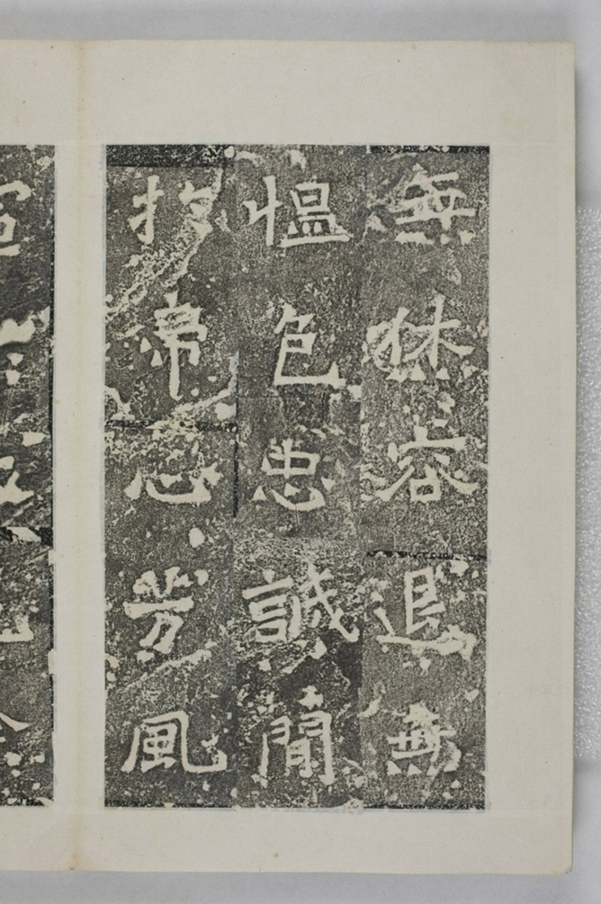 無怵容退無
愠色忠誠閒
扵帝心芳風